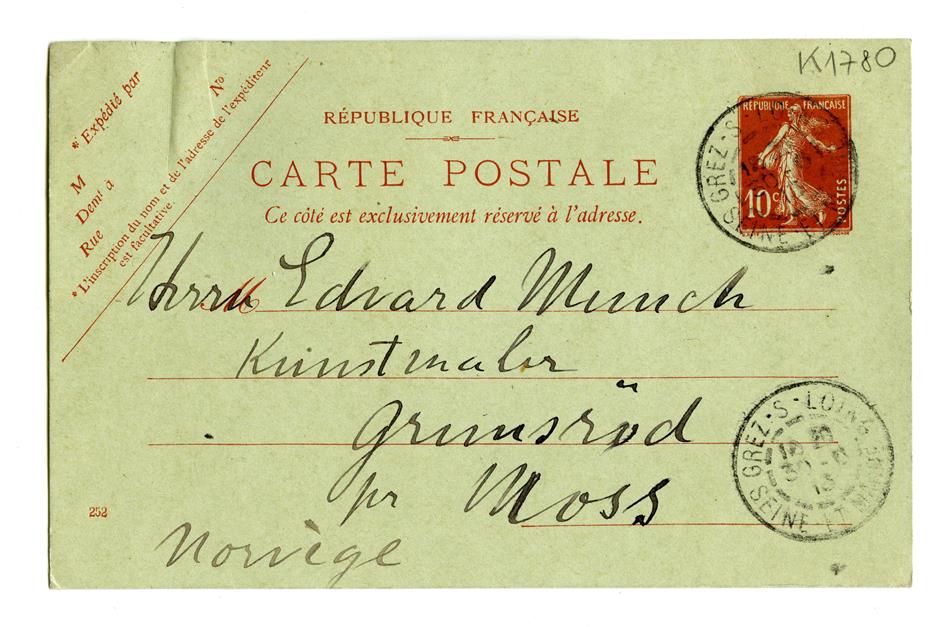 K1780
* Expédié par
M
Demt à
Rue
No
* L'inscription du nom et de l'adresse de l'expéditeur
est facultative.
RÉPUBLIQUE FRANÇAISE
CARTE POSTALE
Ce côté est exclusivement réservé à l'adresse.
RÉPUBLIQUE FRANÇAISE
10c
POSTES
GREZ-S-LOING
SEINE-ET-
M
Herrn Edvard Munch
Kunstmaler
Grimsröd
pr Moss
Norvège
GREZ-S-LOING
SEINE-ET-MARNE
252